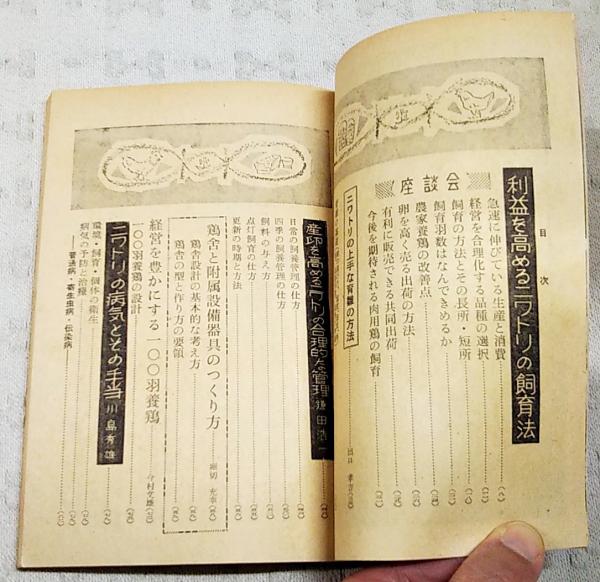 目次
利益を高めるニワトリの飼育法
座談会
急速に伸びている生産と消費
経営を合理化する品種の選択
飼育の方法とその長所・短所
飼育羽数はなんできめるか
農家養鶏の改善点
卵を高く売る出荷の方法
有利に販売できる共同出荷
今後を期待される肉用鶏の飼育
ニワトリの上手な育雛の方法
産卵を高めるニワトリの合理的な管理
日常の飼養管理の仕方
四季の飼養管理の仕方
飼料の与え方
点灯飼育の仕方
更新の時期と方法
鶏舎と附属設備器具のつくり方
鶏舎設計の基本的な考え方
鶏舎の型と作り方の要領
経営を豊かにする一〇〇羽養鶏 今村文雄
一〇〇羽養鶏の設計
ニワトリの病気とその手当 川島秀雄
環境・飼育・個体の衛生
病気の予防と治療
普通病・寄生虫病・伝染病